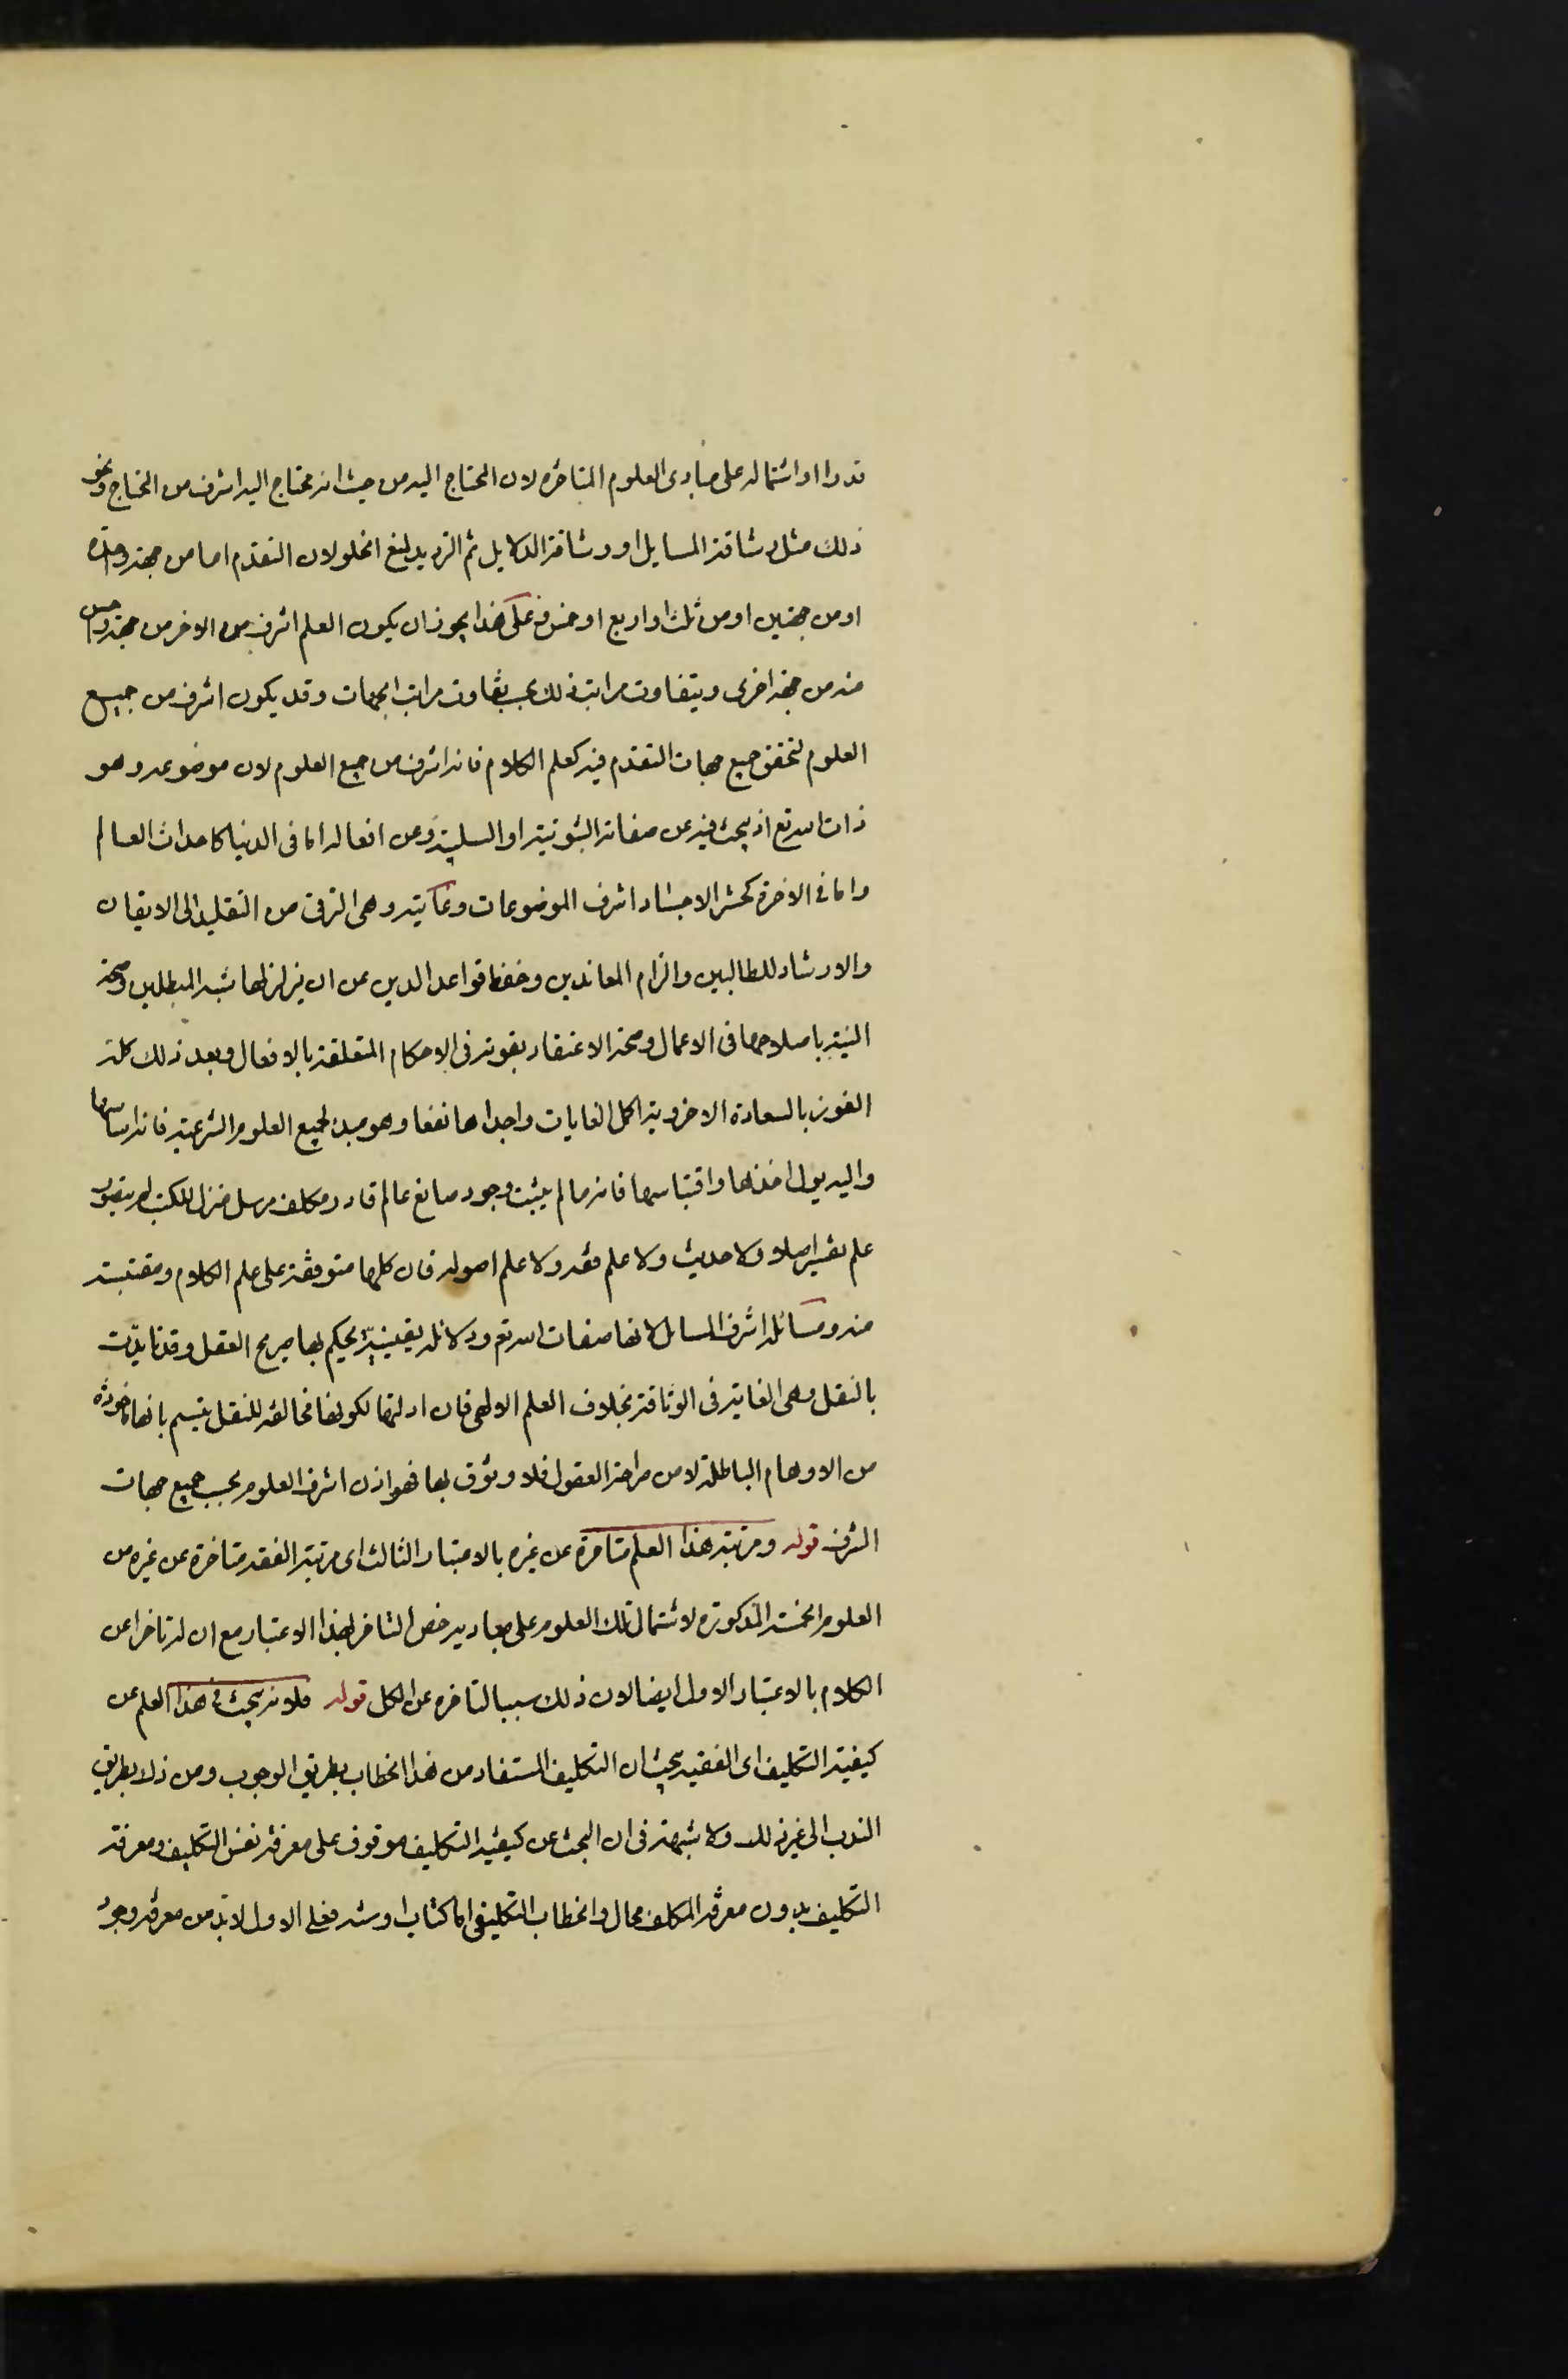 قدرا او اشتماله على مبادى العلوم المتاخره لان المحتاج اليه من حيث انه محتاج اليه اشرف من المحتاج ونحو
ذلك مثل وثاقة المسايل او وثاقة الدلايل ثم الترديد لمنع الخلو لان التقدم اما من جهة واحدة
او من جهتين او من ثلث او اربع او خمس فعلى هذا يجوز ان يكون العلم اشرف من الاخر من جهة واخس
منه من جهة اخرى ويتفاوت مراتب ذلك بحسب تفاوت مراتب الجهات وقد يكون اشرف من جميع
العلوم لتحقق جميع جهات التقدم فيه كعلم الكلام فانه اشرف من جميع العلوم لان موضوعه وهو
ذات الله تع اذ يبحث فيه عن صفاته الثبوتية او السلبية وعن افعاله اما فى الدنيا كاحداث العالم
واما فى الاخرة كحشر الاجساد اشرف الموضوعات وغايته وهى الترقى من التقليد الى الايقان
والارشاد للطالبين والزام المعاندين وحفظ قواعد الدين عن ان يزلزلها شبه المبطلين وصحة
النية باصلاحها فى الاعمال وصحة الاعتقاد بقوته فى الاحكام المتعلقة بالافعال وبعد ذلك كله
الفوز بالسعادة الاخروية اكمل الغايات واجداها نفعا وهو مبدء لجميع العلوم الشرعية فانه اساسها
واليه يؤل اخذها واقتباسها فانه ما لم يثبت وجود صانع عالم قادر مكلف مرسل منزل للكتب لم يتصور
علم تفسير اصلا ولا حديث ولا علم فقه ولا علم اصوله فان كلها متوقفة على علم الكلام ومقتبسة
منه ومسائله اشرف المسائل لانها صفات الله تع ودلائله يقينية يحكم بها صريح العقل وقد تايدت
بالنقل وهى الغاية فى الوثاقة بخلاف العلم الالهى فان ادلتها لكونها مخالفة للنقل يتسم بانها ماخوذة
من الاوهام الباطلة لا من صراحة العقول فلا وثوق بها فهو اذن اشرف العلوم بحسب جميع جهات
الشرف قوله ومرتبة هذا العلم متاخرة عن غيره بالاعتبار الثالث اى مرتبة الفقه متاخرة عن غيره من
العلوم الخمسة المذكورة لاشتمال تلك العلوم على مباديه خص التاخر بهذا الاعتبار مع ان له تاخرا عن
الكلام بالاعتبار الاول ايضا لان ذلك سبب التاخره عن الكل قوله فلانه يبحث فى هذا العلم عن
كيفية التكليف اى الفقيه يبحث ان التكليف المستفاد من هذا الخطاب بطريق الوجوب ومن ذلك بطريق
الندب الى غير ذلك ولا شبهة فى ان البحث عن كيفية التكليف موقوف على معرفة نفس التكليف ومعرفة
التكليف بدون معرفة المكلف محال والخطاب التكليفى اما كتاب او سنة فعلى الاول لابد من معرفة وجوه